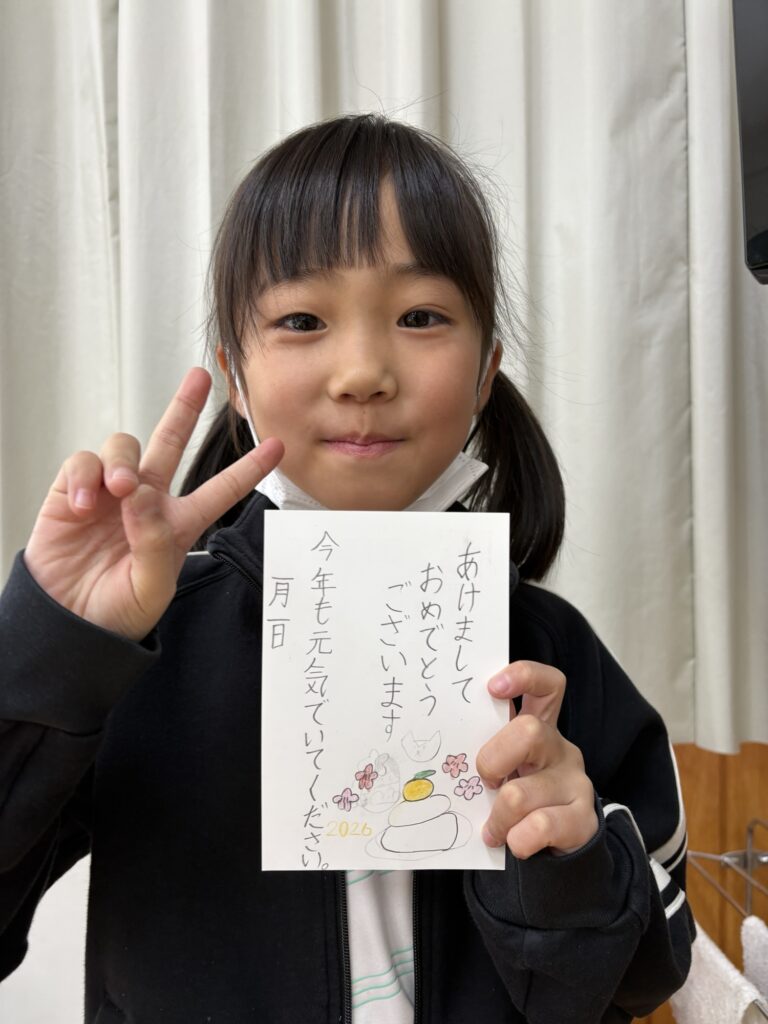 あけまして
おめでとう
ございます
今年も元気でいてください。
一月一日
2026